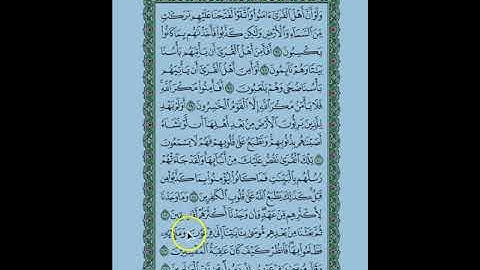 وَلَوْ أَنَّ أَهْلَ ٱلْقُرَىٰٓ ءَامَنُوا۟ وَٱتَّقَوْا۟ لَفَتَحْنَا عَلَيْهِم بَرَكَٰتٍ
مِّنَ ٱلسَّمَآءِ وَٱلْأَرْضِ وَلَٰكِن كَذَّبُوا۟ فَأَخَذْنَٰهُم بِمَا كَانُوا۟
يَكْسِبُونَ ٩٦ أَفَأَمِنَ أَهْلُ ٱلْقُرَىٰٓ أَن يَأْتِيَهُم بَأْسُنَا
بَيَٰتًا وَهُمْ نَآئِمُونَ ٩٧ أَوَأَمِنَ أَهْلُ ٱلْقُرَىٰٓ أَن يَأْتِيَهُم
بَأْسُنَا ضُحًى وَهُمْ يَلْعَبُونَ ٩٨ أَفَأَمِنُوا۟ مَكْرَ ٱللَّهِ
فَلَا يَأْمَنُ مَكْرَ ٱللَّهِ إِلَّا ٱلْقَوْمُ ٱلْخَٰسِرُونَ ٩٩ أَوَلَمْ يَهْدِ
لِلَّذِينَ يَرِثُونَ ٱلْأَرْضَ مِنۢ بَعْدِ أَهْلِهَآ أَن لَّوْ نَشَآءُ
أَصَبْنَٰهُم بِذُنُوبِهِمْ وَنَطْبَعُ عَلَىٰ قُلُوبِهِمْ فَهُمْ لَا يَسْمَعُونَ
١٠٠ تِلْكَ ٱلْقُرَىٰ نَقُصُّ عَلَيْكَ مِنْ أَنۢبَآئِهَا وَلَقَدْ جَآءَتْهُمْ
رُسُلُهُم بِٱلْبَيِّنَٰتِ فَمَا كَانُوا۟ لِيُؤْمِنُوا۟ بِمَا كَذَّبُوا۟ مِن
قَبْلُ كَذَٰلِكَ يَطْبَعُ ٱللَّهُ عَلَىٰ قُلُوبِ ٱلْكَٰفِرِينَ ١٠١ وَمَا وَجَدْنَا
لِأَكْثَرِهِم مِّنْ عَهْدٍ وَإِن وَجَدْنَآ أَكْثَرَهُمْ لَفَٰسِقِينَ ١٠٢
ثُمَّ بَعَثْنَا مِنۢ بَعْدِهِم مُّوسَىٰ بِـَٔايَٰتِنَآ إِلَىٰ فِرْعَوْنَ وَمَلَإِي۟هِۦ
فَظَلَمُوا۟ بِهَا فَٱنظُرْ كَيْفَ كَانَ عَٰقِبَةُ ٱلْمُفْسِدِينَ ١٠٣